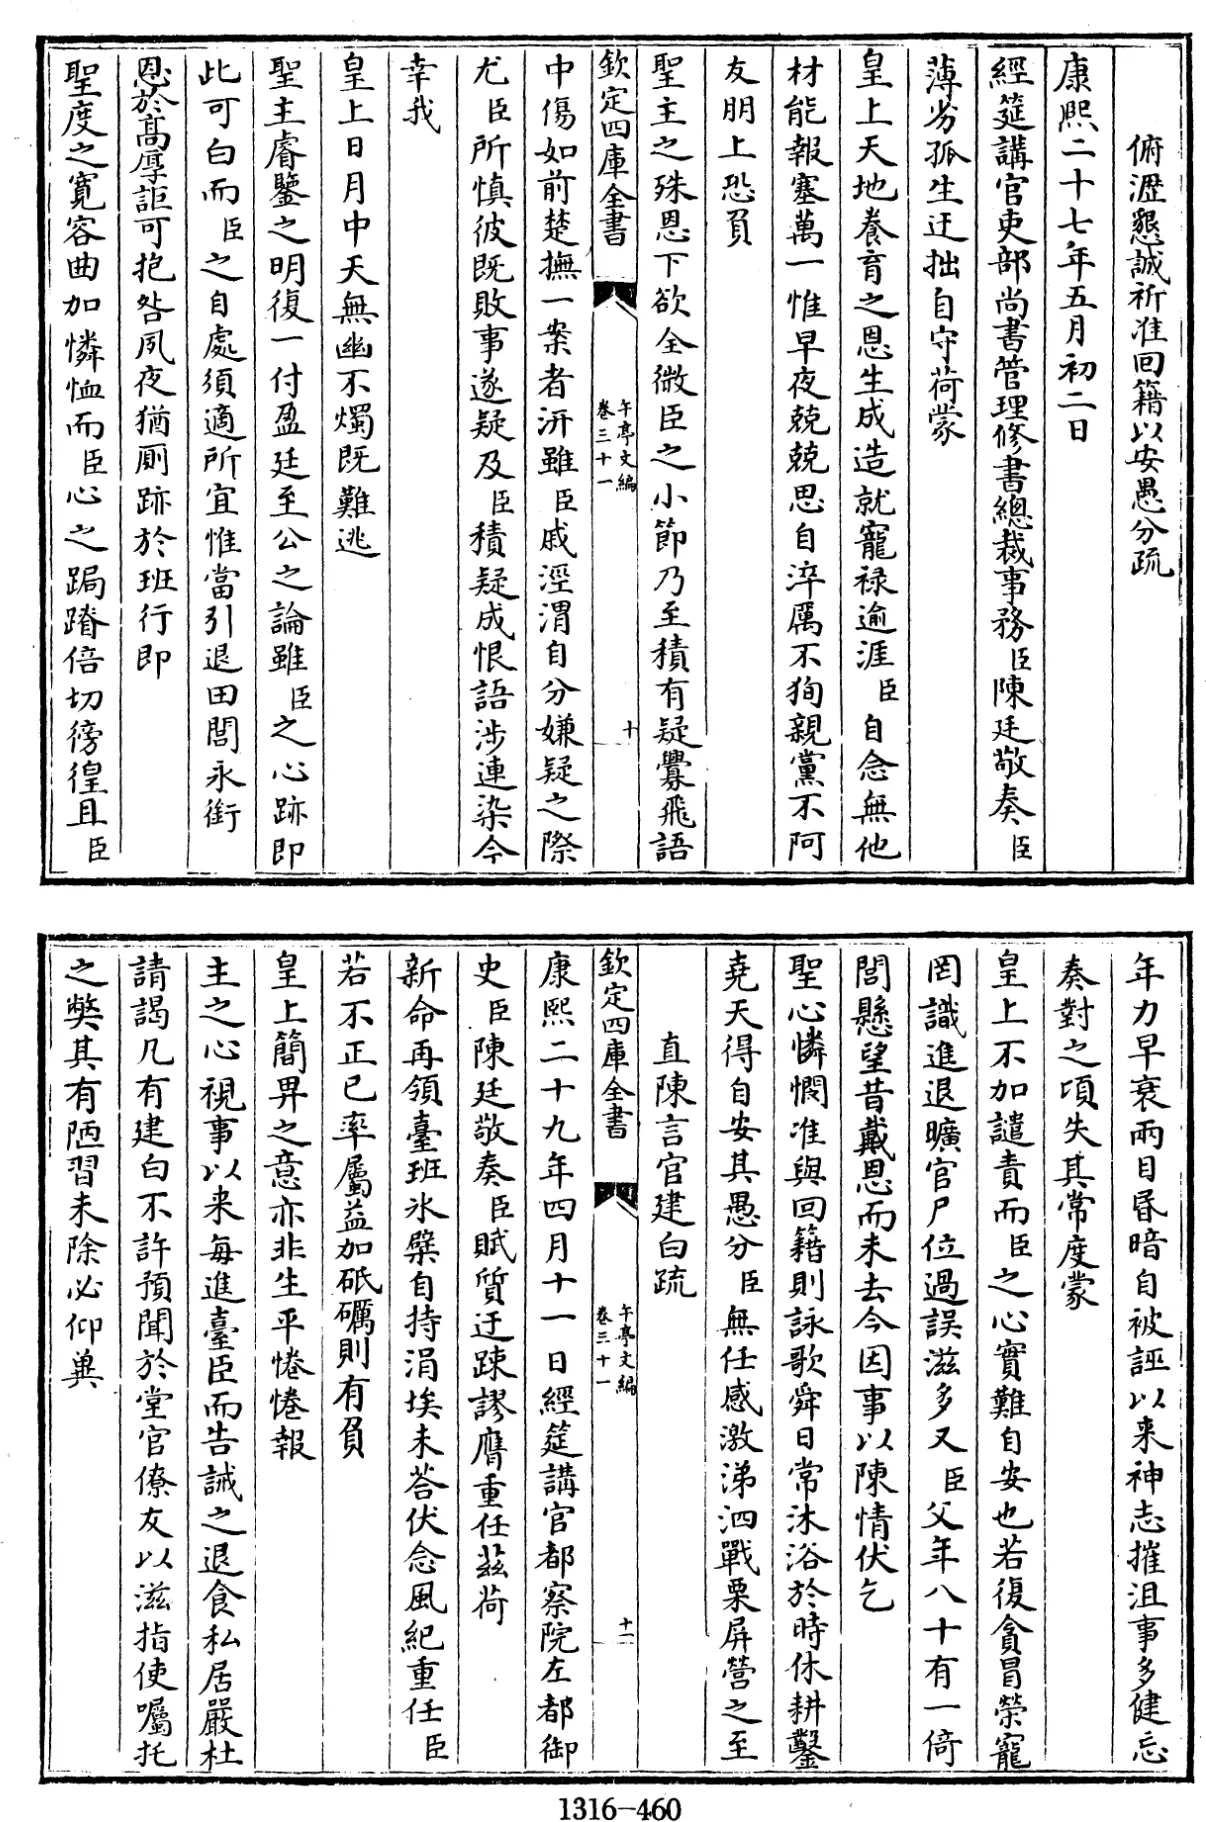 俯瀝懇誠祈准回籍以安愚分疏
康熙二十七年五月初二日
經筵講官吏部尚書管理修書總裁事務臣陳廷敬奏臣
薄劣孤生迂拙自守荷蒙
皇上天地養育之恩生成造就寵禄逾涯臣自念無他
材能報塞萬一惟早夜兢兢思自淬厲不狥親黨不阿
友朋上恐負
聖主之殊恩下欲全微臣之小節乃至積有疑釁飛語
欽定四庫全書
午亭文編
卷三十一
十
中傷如前楚撫一案者汧雖臣戚涇渭自分嫌疑之際
尤臣所慎彼既敗事遂疑及臣積疑成恨語涉連染今
幸我
皇上日月中天無幽不燭既難逃
聖主睿鑒之明復一付盈廷至公之論雖臣之心跡即
此可白而臣之自處須適所宜惟當引退田閭永銜
恩於高厚詎可抱咎夙夜猶厠跡於班行即
聖度之寛容曲加憐恤而臣心之跼蹐倍切徬徨且臣
年力早衰兩目昬暗自被誣以来神志摧沮事多健忘
奏對之頃失其常度蒙
皇上不加譴責而臣之心實難自安也若復貪冒榮寵
罔識進退曠官尸位過誤滋多又臣父年八十有一倚
閭懸望昔戴恩而未去今因事以陳情伏乞
聖心憐憫准與回籍則詠歌舜日常沐浴於時休耕鑿
堯天得自安其愚分臣無任感激涕泗戰栗屏營之至
直陳言官建白疏
欽定四庫全書
午亭文編
卷三十一
十一
康熙二十九年四月十一日經筵講官都察院左都御
史臣陳廷敬奏臣賦質迂疎謬膺重任兹荷
新命再領臺班氷檗自持涓埃未荅伏念風紀重任臣
若不正已率屬益加砥礪則有負
皇上簡畀之意亦非生平惓惓報
主之心視事以来每進臺臣而告誡之退食私居嚴杜
請謁凡有建白不許預聞於堂官僚友以滋指使囑托
之獘其有陋習未除必仰兾
1316-460